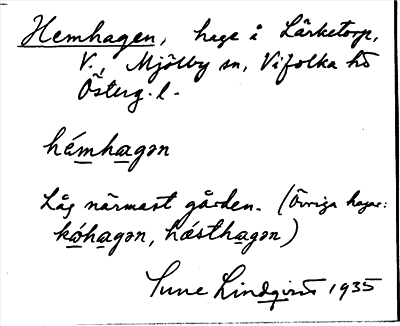 Hemhagen, hage å Lärketorp,
V., Mjölby sn, Vifolka hd
Österg. l.
hémhagən
Låg närmast gården. (Övriga hagar:
kóhagən, hæsthagən)
Sune Lindqvist 1935